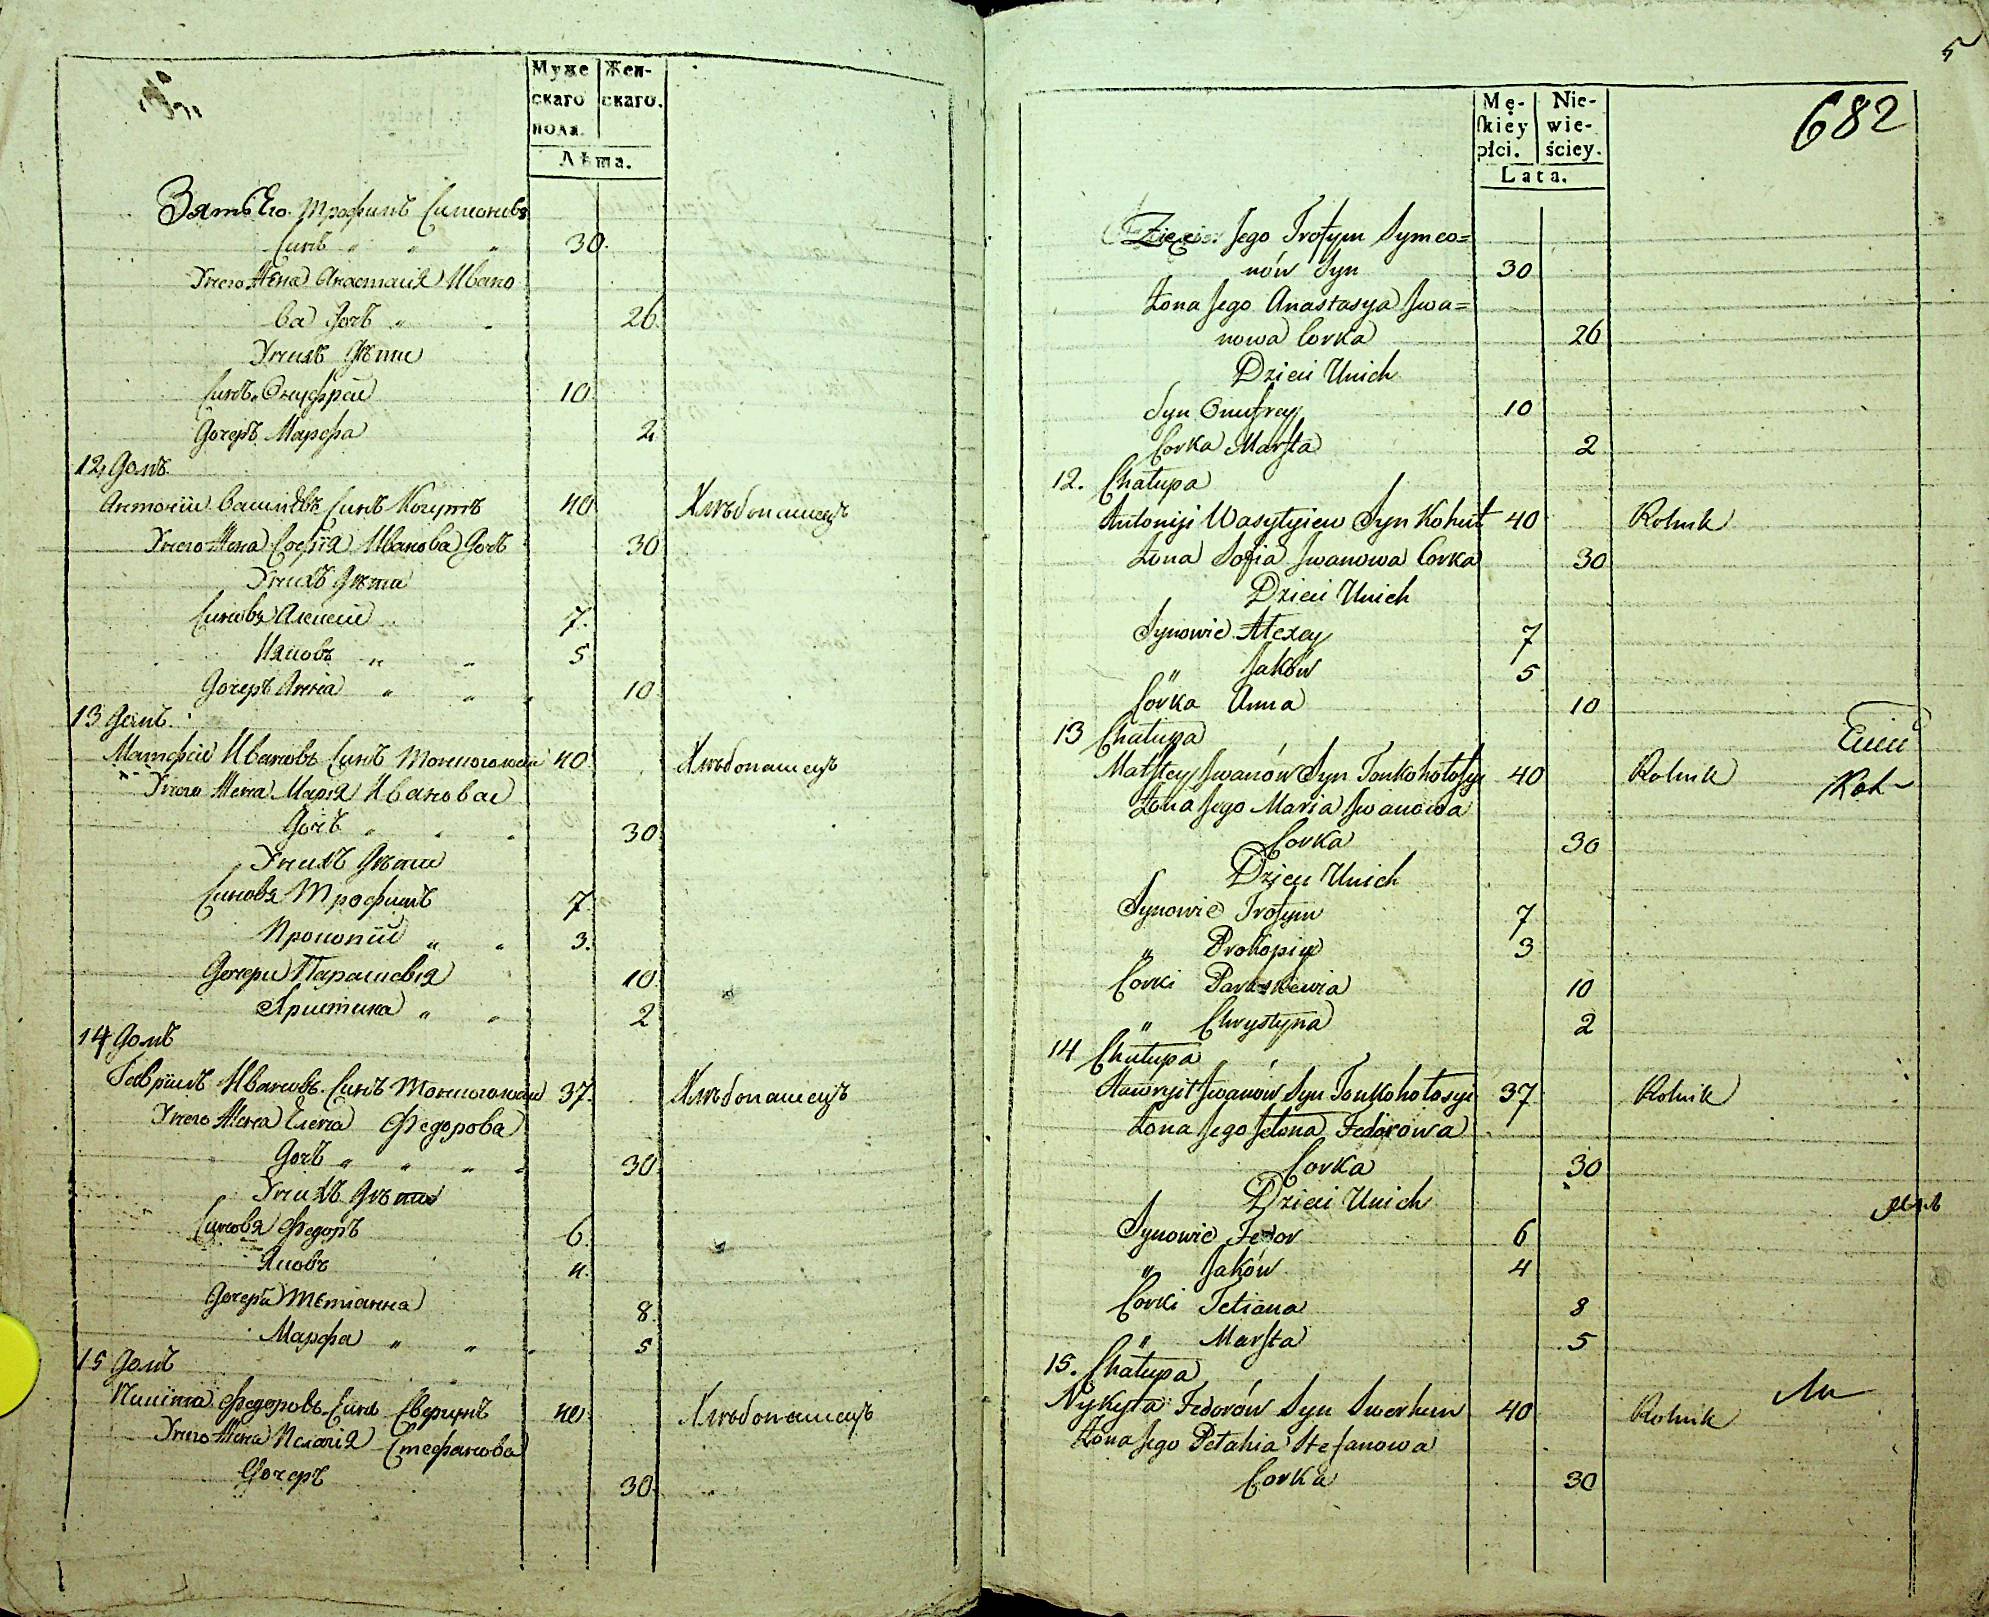 Муже Жен-
скаго скаго.
пола.
Лѣта.
Зять Его Трофимъ Симоновъ
Синъ " " " 30.
Унего Жена Анастасия Ивано
ва Дочъ " " 26.
Унихъ Дѣти
Синъ Онуфрей 10.
Дочеръ Марфа 2.
12, Домъ.
Антоний Василіевъ Синъ Когутъ 40. Хлѣбопашецъ
Унего Жена Софія Иванова Дочъ 30
Унихъ Дѣти
Синовя Алексей 7.
Іяковъ " " 5
Дочеръ Анна " " " 10.
13 Домъ.
Матфей Ивановъ Синъ Тонкоголосій 40. Хлѣбопашецъ
Унего Жена Марія Ивановая
Дочъ " " " 30.
Унихъ Дѣти
Синовя Трофимъ 7.
Прокопій " " 3.
Дочери Параскевія 10.
Христина " " 2
14 Домъ
Гаврилъ Ивановъ Синъ Тонкоголосій 37. Хлѣбопашецъ
Унего Жена Елена Федорова
Дочъ " " " " 30.
Унихъ Дѣти
Синовя Федоръ 6.
Яковъ 4.
Дочери Тетіанна 8.
Марфа " " " 5
15 Домъ
Никита Федоровъ Синъ Сверщъ 40. Хлѣбопашецъ
Унего Жена Пелагія Стефанова
Дочеръ 30.
5
Mę- Nie-
skiey wie-
płci. ściey.
Lata.
682
Zięć Jego Trofym Symeo=
nów Syn 30
Żona Jego Anastasya Jwa=
nowa Corka 26
Dzieci Unich
Syn Onufrey 10
Corka Marfta 2
12. Chałupa
Antoniji Wasylyiew Syn Kohut 40 Rolnik
Żona Sofia Jwanowa Corka 30
Dzieci Unich
Synowie Alexey 7
" Jaków 5
Corka Anna 10
13 Chałupa
Matftey Jwanów Syn Tonkohołosyi 40 Rolnik
Żona Jego Maria Jwanowa
Corka 30
Dzieci Unich
Synowie Trofym 7
" Prokopiy 3
Corki Paraskewia 10
" Chrystyna 2
14 Chałupa
Hawryił Jwanów Syn Tonkohołosyi 37 Rolnik
Żona Jego Jełena Fedorowa
Corka 30
Dzieci Unich
Synowie Fedor 6
" Jaków 4
Corki Tetiana 8
" Marfta 5
15. Chałupa
Nykyta Fedorów Syn Swerhun 40 Rolnik
Żona Jego Pełahia Stefanowa
Corka 30